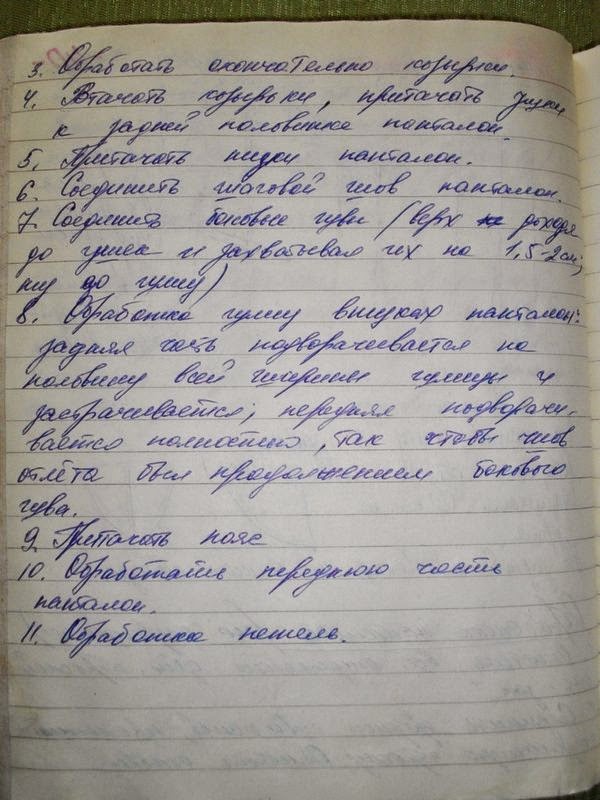 3. Обработать окончательно козырки.
4. Втачать козырьки, притачать ушки
к задней половинке панталон.
5. Притачать низки панталон.
6. Соединить шаговой шов панталон.
7. Соединить боковые швы (верх доходя
до ушек и захватывая их на 1,5-2 см;
низ до шлицы)
8. Обработка шлиц в панталон:
задняя часть подворачивается на
половину всей ширины шлицы и
застрачивается; передняя подворачи-
вается полностью, так чтобы шов
отлёта был продолжением бокового
шва.
9. Притачать пояс
10. Обработать переднюю часть
панталон.
11. Обработка петель.